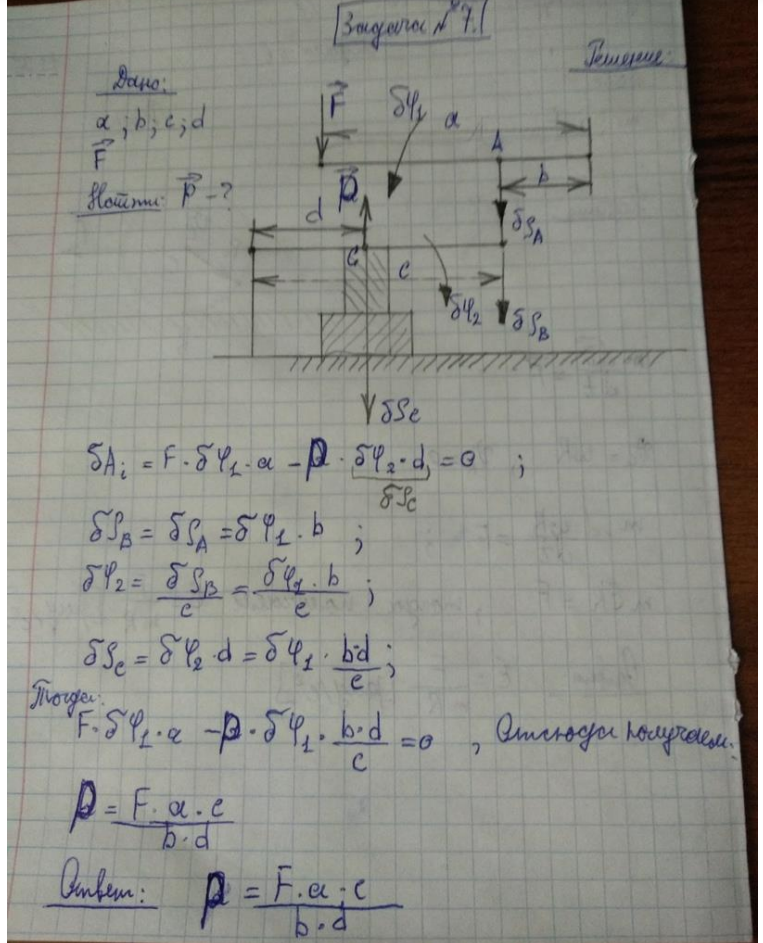 Задача № 7.
Решение:
Дано:
a ; b ; c ; d
F⃗
Найти: P⃗ - ?
F⃗
δφ₁
a
A
b
P⃗
d
δS_A
C
c
δφ₂
δS_B
δS_c
δA_i = F · δφ₁ · a − P · δφ₂ · d = 0 ;
δS_c
δS_B = δS_A = δφ₁ · b ;
δφ₂ = δS_B/c = δφ₁ · b/c ;
δS_c = δφ₂ · d = δφ₁ · b·d/c ;
Тогда:
F · δφ₁ · a − P · δφ₁ · b·d/c = 0 , Отсюда получаем:
P = F · a · c/b · d
Ответ: P = F · a · c/b · d